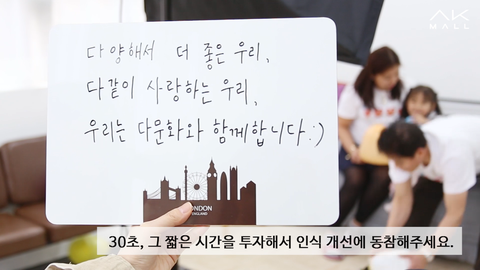 AK
MALL
다양해서 더 좋은 우리,
다같이 사랑하는 우리,
우리는 다문화와 함께합니다:)
LONDON
ENGLAND
30초, 그 짧은 시간을 투자해서 인식 개선에 동참해주세요.